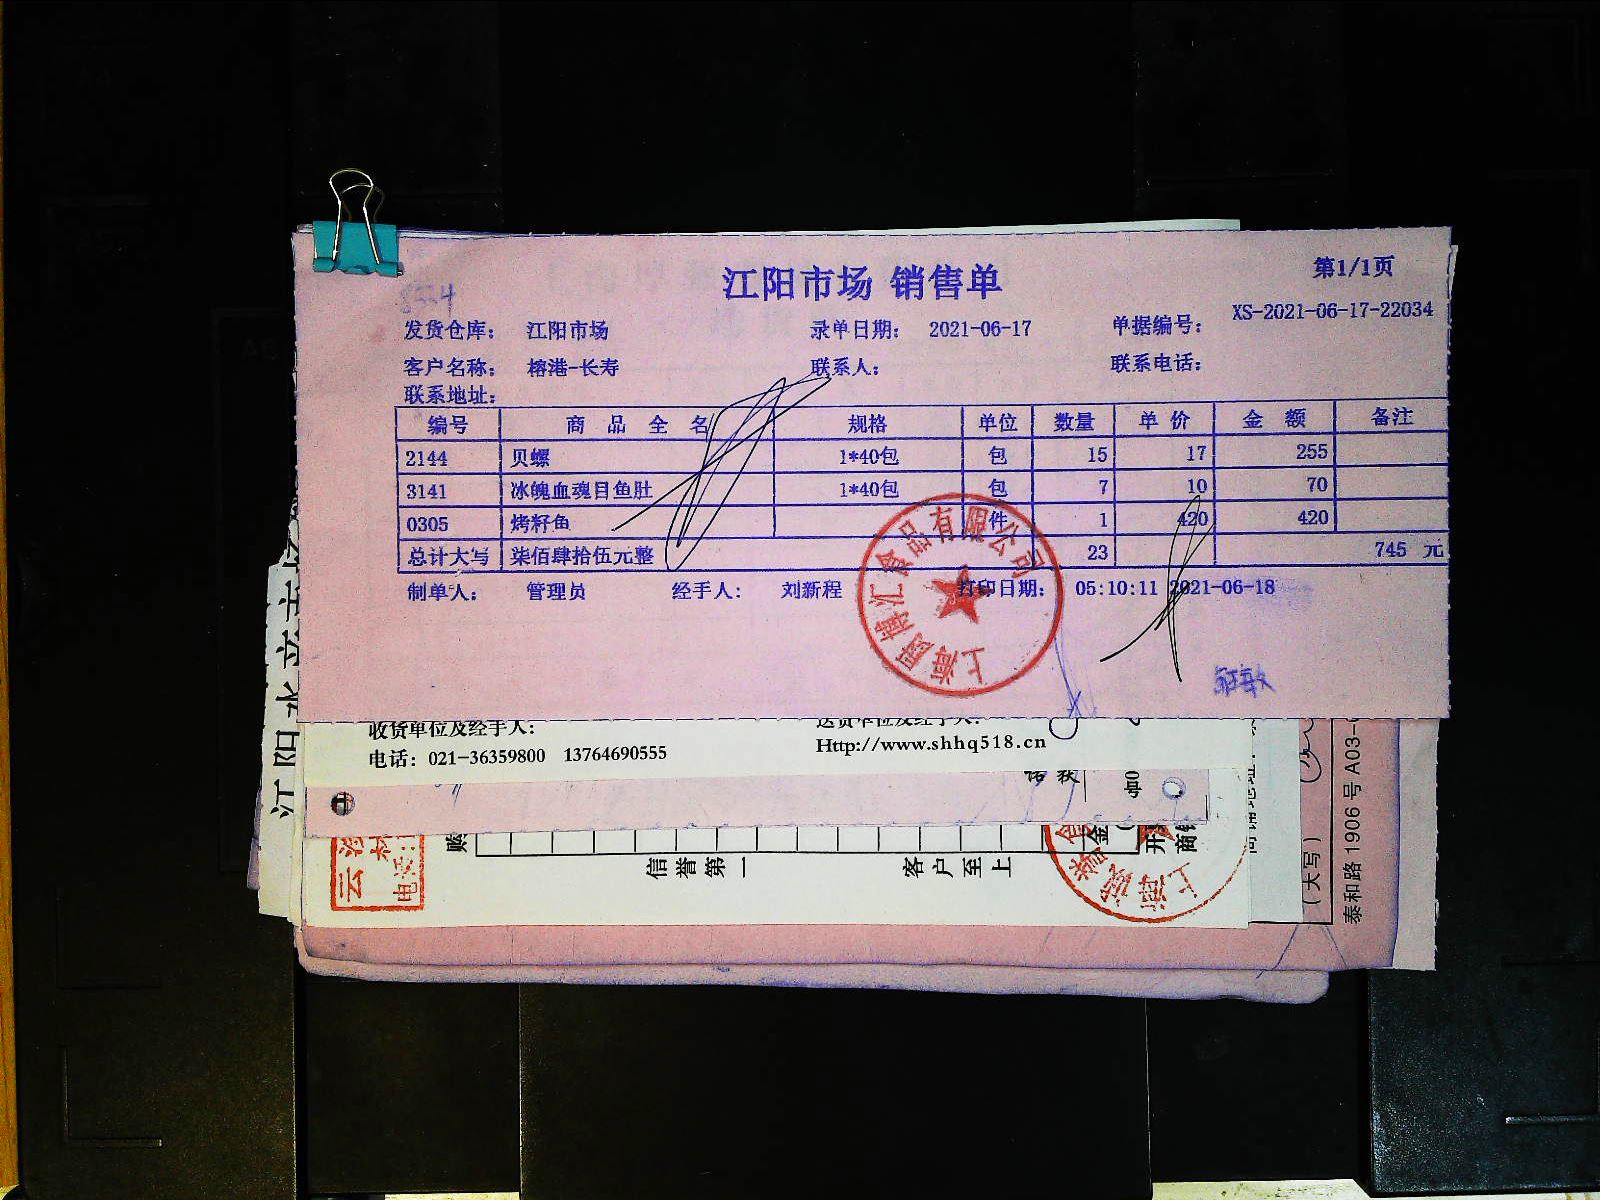 江阳市场 销售单
第1/1页
发货仓库： 江阳市场 录单日期： 2021-06-17 单据编号： XS-2021-06-17-22034
客户名称： 榕港-长寿 联系人： 联系电话：
联系地址：
编号 商 品 全 名 规格 单位 数量 单 价 金 额 备注
2144 贝螺 1*40包 包 15 17 255
3141 冰魄血魂目鱼肚 1*40包 包 7 10 70
0305 烤籽鱼 件 1 420 420
总计大写 柒佰肆拾伍元整 23 745 元
制单人： 管理员 经手人： 刘新程 打印日期： 05:10:11 2021-06-18
上海厨博汇食品有限公司
收货单位及经手人：
送货单位及经手人：
电话：021-36359800 13764690555
Http://www.shhq518.cn
信誉第一
客户至上
（大写）
泰和路 1906 号 A03-
江阳水产